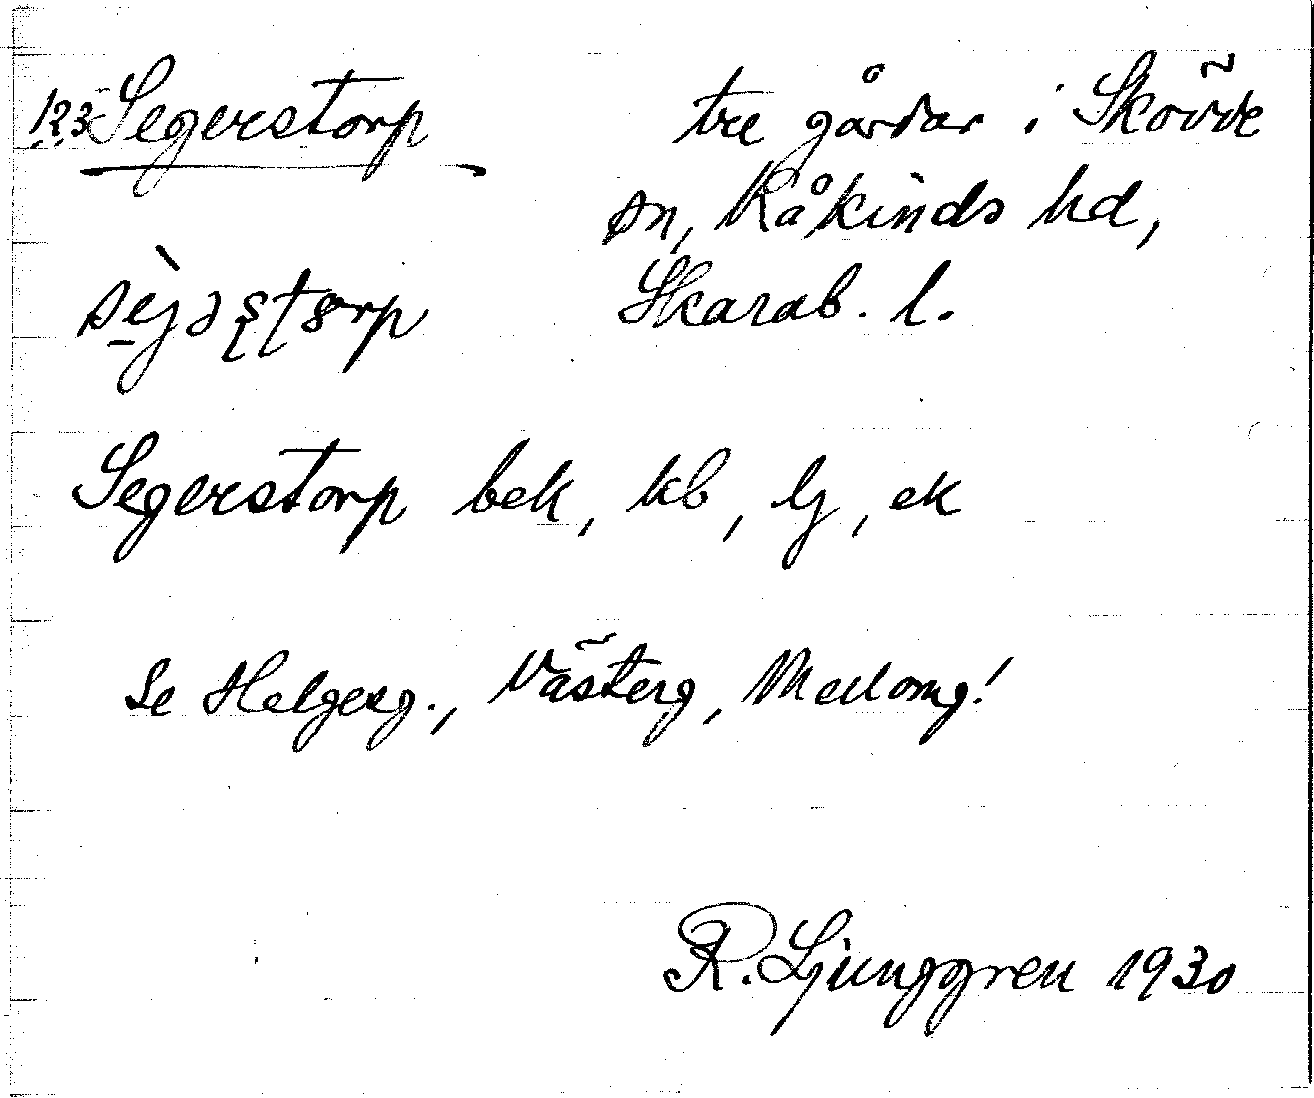 123 Segerstorp
tre gårdar i Skövde
sn, Kåkinds hd,
Skarab. l.
Segerstorp bek, kb, lj, ek
Se Helgesg., Västerg, Mellomg!
R. Ljunggren 1930